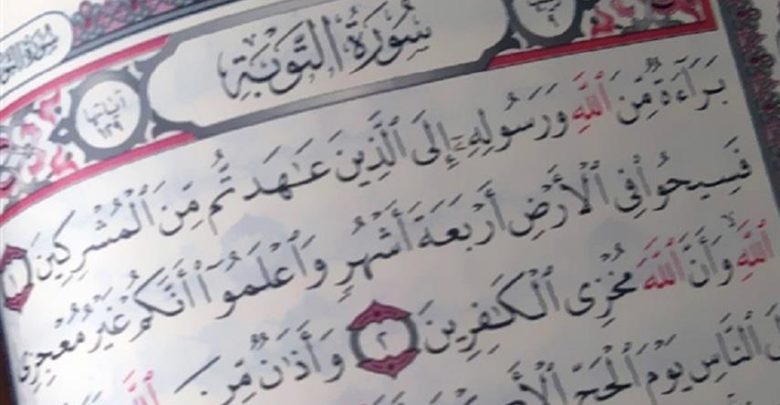 سُورَةُ التَّوْبَةِ
آياتها ١٢٩
بَرَآءَةٌ مِّنَ ٱللَّهِ وَرَسُولِهِۦٓ إِلَى ٱلَّذِينَ عَـٰهَدتُّم مِّنَ ٱلْمُشْرِكِينَ ١
فَسِيحُوا۟ فِى ٱلْأَرْضِ أَرْبَعَةَ أَشْهُرٍ وَٱعْلَمُوٓا۟ أَنَّكُمْ غَيْرُ مُعْجِزِى
ٱللَّهِ ۙ وَأَنَّ ٱللَّهَ مُخْزِى ٱلْكَـٰفِرِينَ ٢ وَأَذَٰنٌ مِّنَ ٱللَّهِ
ٱلنَّاسِ يَوْمَ ٱلْحَجِّ